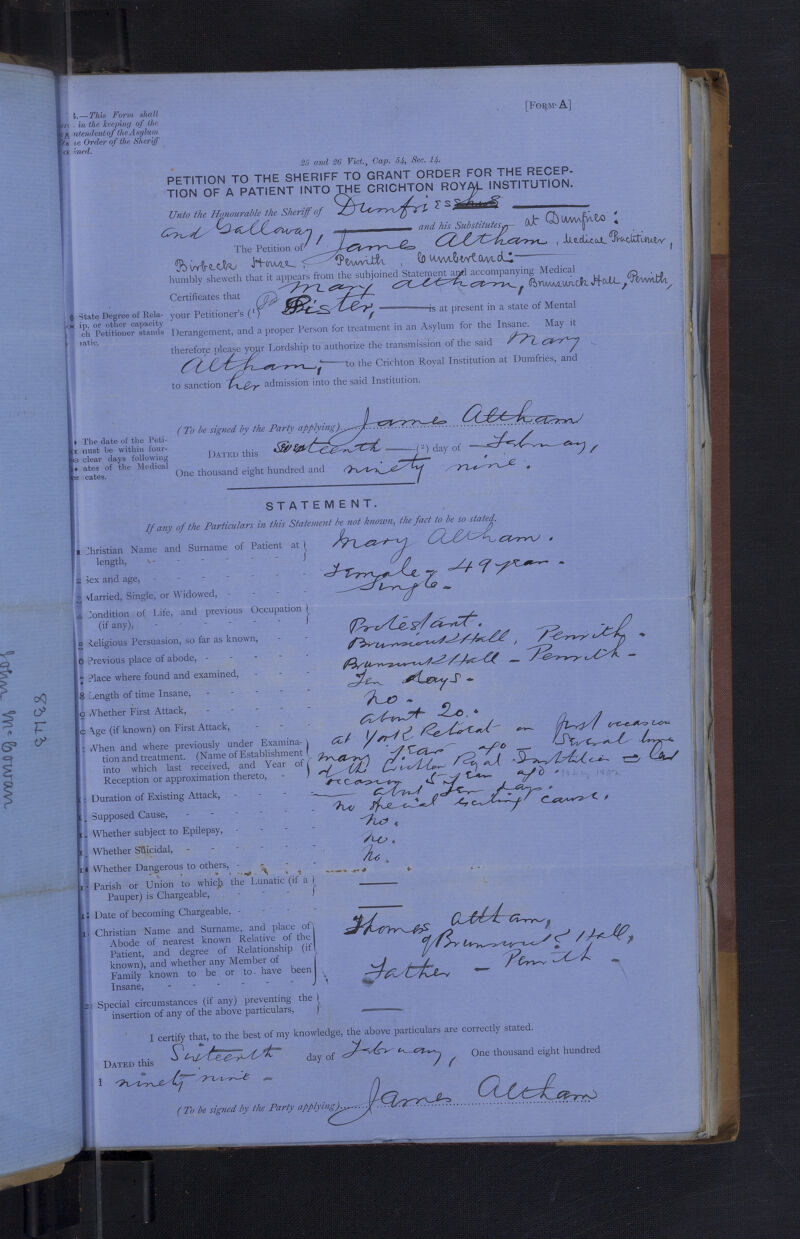 [FORM A]
.—This Form shall
in the keeping of the
ntendent of the Asylum
ie Order of the Sheriff
ined.
25 and 26 Vict., Cap. 54, Sec. 14.
PETITION TO THE SHERIFF TO GRANT ORDER FOR THE RECEP-
TION OF A PATIENT INTO THE CRICHTON ROYAL INSTITUTION.
Unto the Honourable the Sheriff of Dumfries
and Galloway, and his Substitutes at Dumfries:
The Petition of James Altham, Medical Practitioner,
Birbeck House, Penrith, Cumberland:
humbly sheweth that it appears from the subjoined Statement and accompanying Medical
Certificates that Mary Altham, Brunswick Hall, Penrith,
your Petitioner's (1) Sister, is at present in a state of Mental
Derangement, and a proper Person for treatment in an Asylum for the Insane. May it
therefore please your Lordship to authorize the transmission of the said Mary
Altham, to the Crichton Royal Institution at Dumfries, and
to sanction her admission into the said Institution.
State Degree of Rela-
ip, or other capacity
ch Petitioner stands
natic.
(To be signed by the Party applying) James Altham
DATED this Sixteenth (2) day of February,
One thousand eight hundred and ninety nine.
The date of the Peti-
must be within four-
clear days following
ates of the Medical
icates.
STATEMENT.
If any of the Particulars in this Statement be not known, the fact to be so stated.
Christian Name and Surname of Patient at length, Mary Altham.
Sex and age, Female 49 years.
Married, Single, or Widowed, Single
Condition of Life, and previous Occupation
(if any),
Religious Persuasion, so far as known, Protestant.
Previous place of abode, Brunswick Hall, Penrith.
Place where found and examined, Brunswick Hall - Penrith
8 Length of time Insane, Ten days.
Whether First Attack, No.
Age (if known) on First Attack, about 20.
When and where previously under Examina-
tion and treatment. (Name of Establishment
into which last received, and Year of
Reception or approximation thereto,
at York Retreat on first occasion
many years ago - Several times
at the Crichton Royal Institution - last
occasion 5 years ago.
Duration of Existing Attack, about Ten days.
Supposed Cause, no special exciting cause.
Whether subject to Epilepsy, No.
Whether Suicidal, No.
Whether Dangerous to others, No.
Parish or Union to which the Lunatic (if a
Pauper) is Chargeable,
Date of becoming Chargeable,
Christian Name and Surname, and place of
Abode of nearest known Relative of the
Patient, and degree of Relationship (if
known), and whether any Member of
Family known to be or to have been
Insane,
Thomas Altham,
of Brunswick Hall,
Father - Penrith
Special circumstances (if any) preventing the
insertion of any of the above particulars,
I certify that, to the best of my knowledge, the above particulars are correctly stated.
DATED this Sixteenth day of February, One thousand eight hundred
ninety nine
(To be signed by the Party applying) James Altham
8343
John McGowan